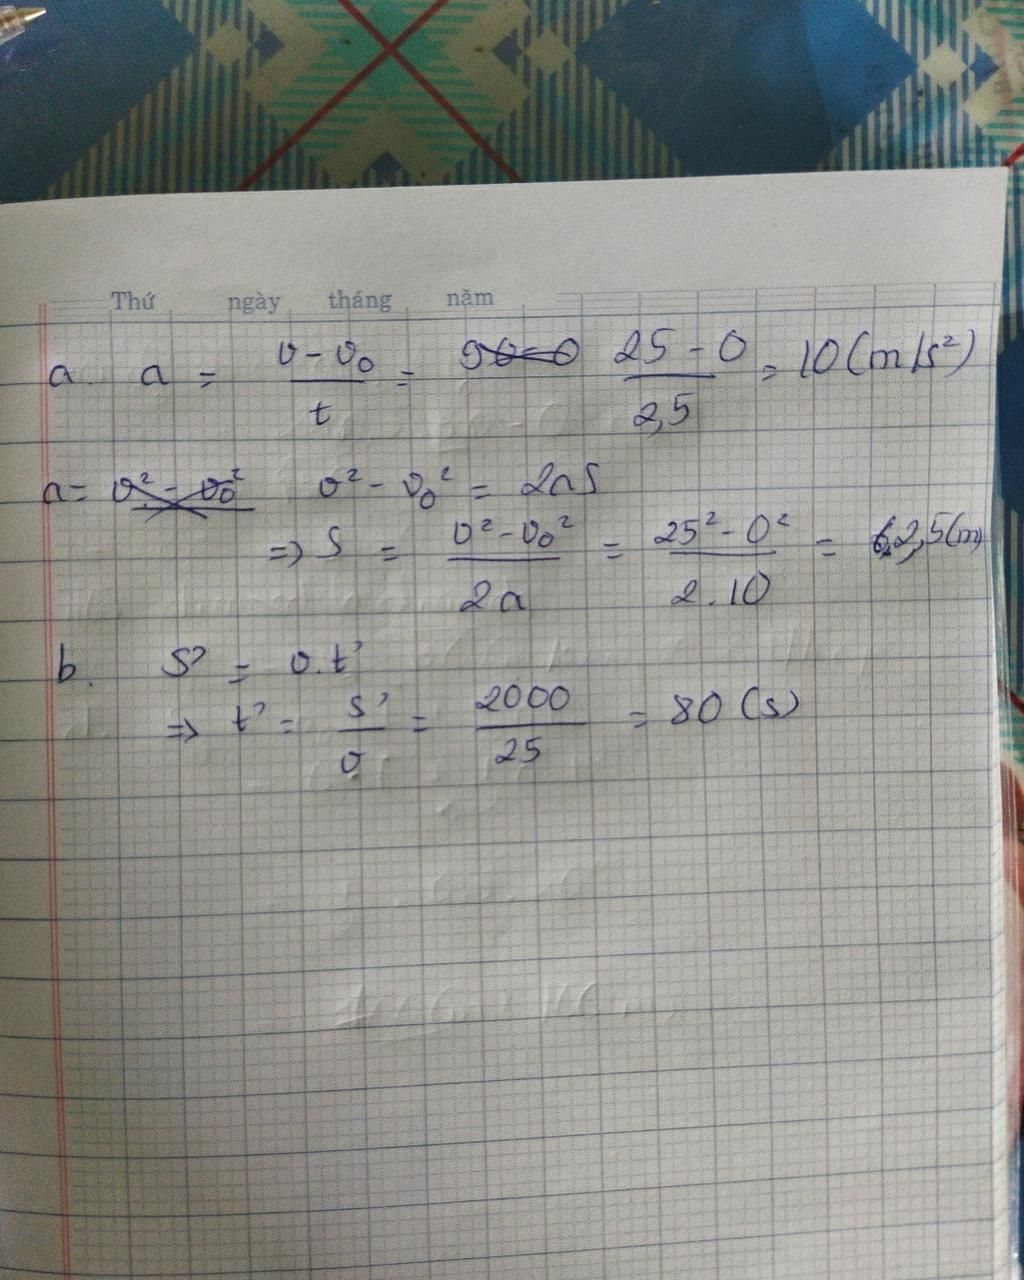 Thứ ngày tháng năm
a. a = (v - v₀)/t = (25 - 0)/2,5 = 10 (m/s²)
a = v² - v₀² v² - v₀² = 2aS
=> S = (v² - v₀²)/(2a) = (25² - 0²)/(2.10) = 62,5 (m)
b. S' = v.t'
=> t' = S'/v = 2000/25 = 80 (s)